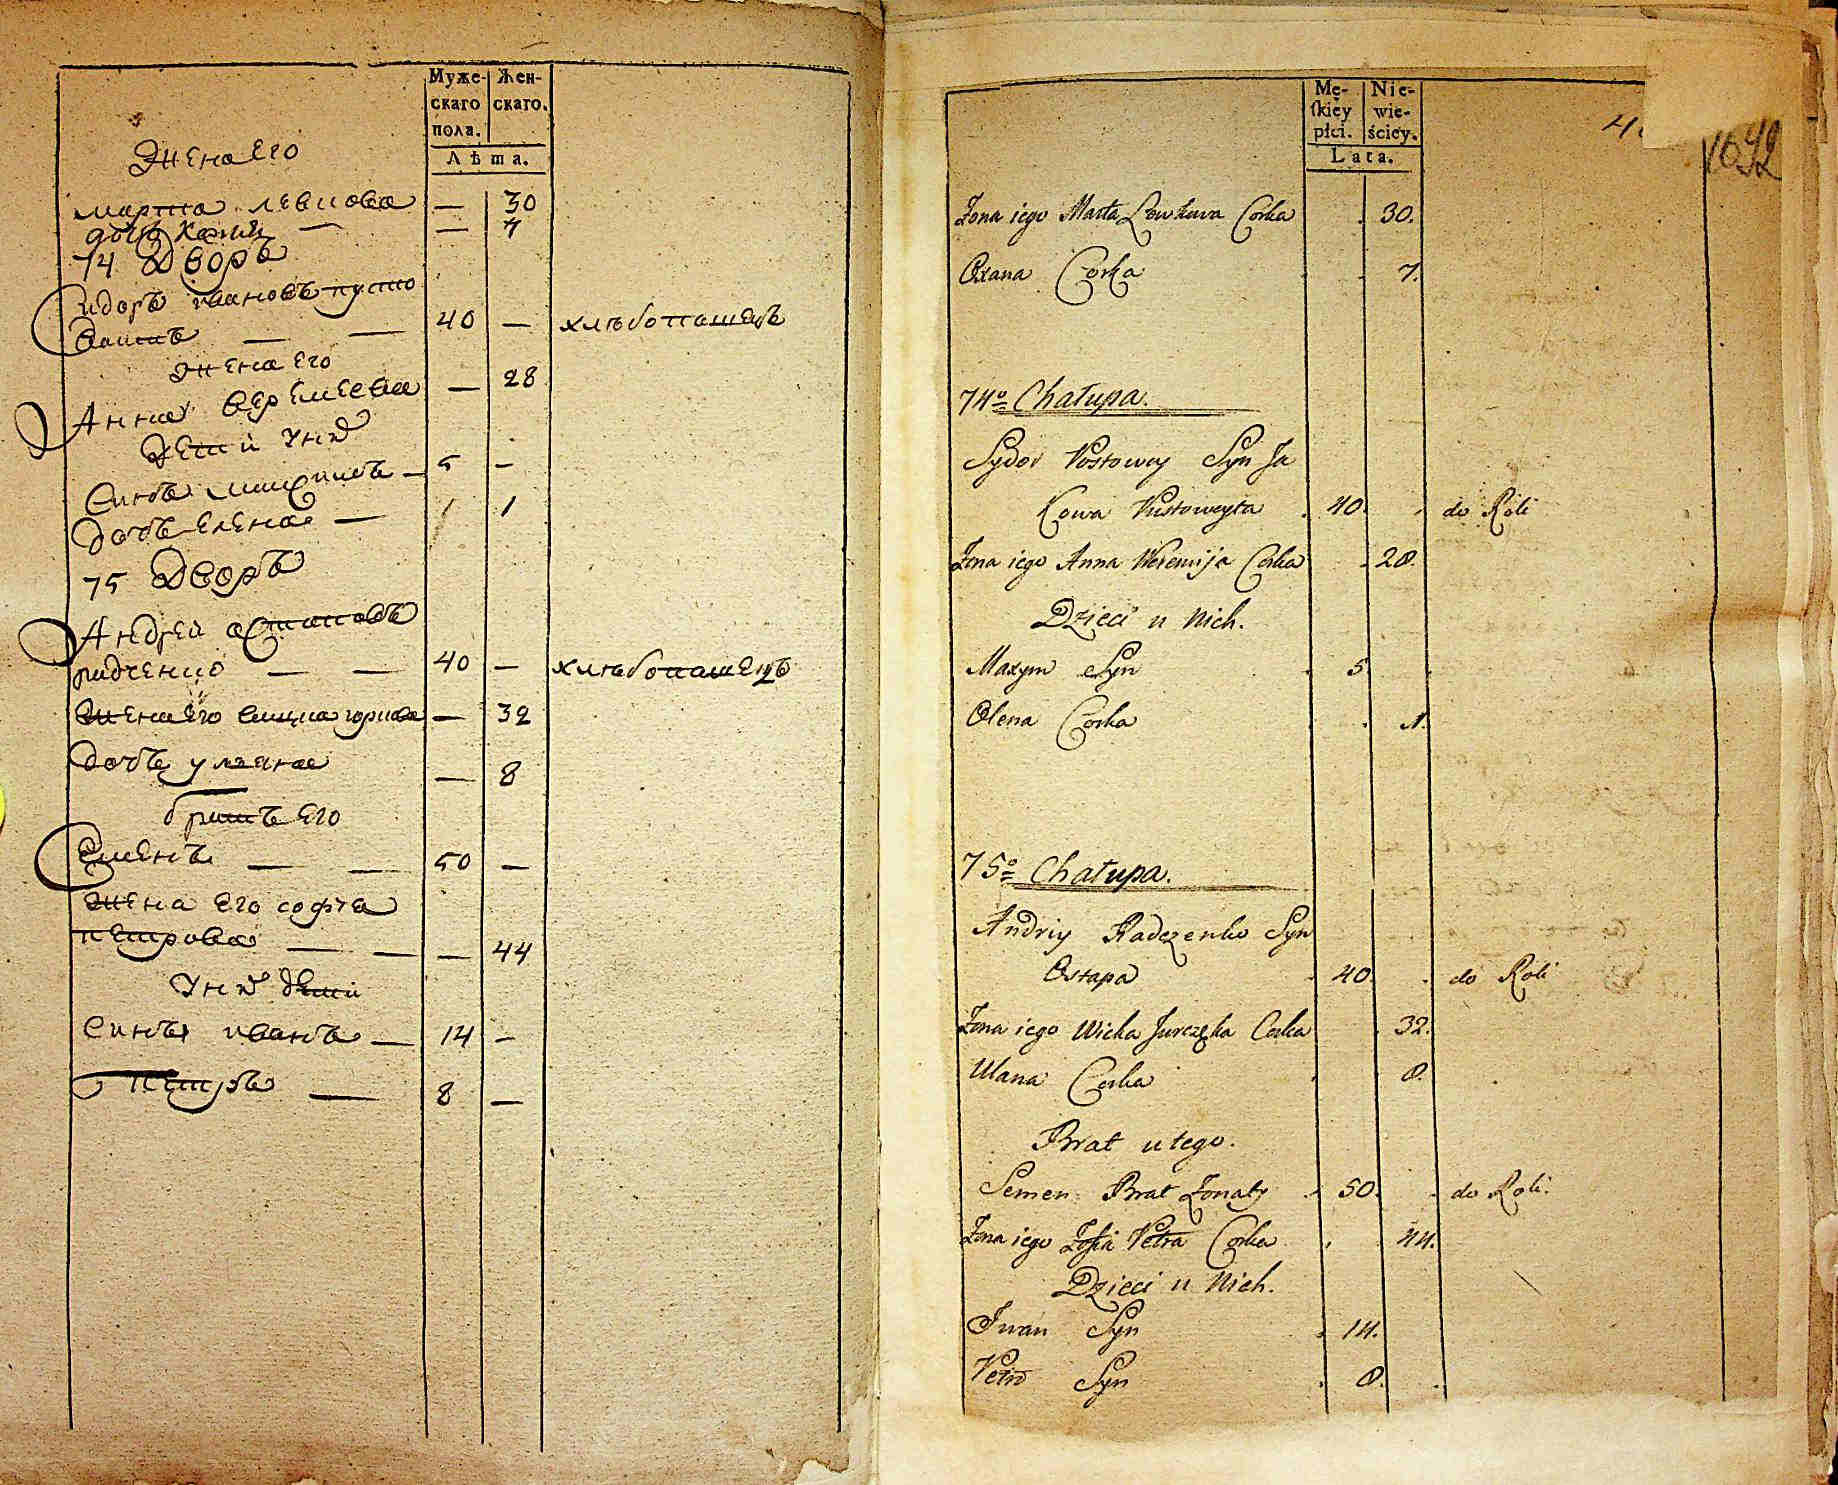 Муже-
скаго
пола.
Жен-
скаго.
Лѣта.
Жена Его
марта левкова — 30
дочь — 7
74 Дворъ
Сидоръ ивановъ пусто
ваитъ — — 40 — хлѣбопашецъ
жена его
Анна веремеева — 28
дети у них
Синъ максимъ — 5 —
дочь елена — 1 1
75 Дворъ
Андрей остаповъ
радченко — — 40 — хлѣбопашецъ
Жена Его — 32
дочь уляна — 8
братъ его
Семенъ — — 50 —
жена его софъя
петрова — — — 44
У них дети
Синъ иванъ — 14 —
петръ — 8 —
Mę-
skiey
płci.
Nie-
wie-
ściey.
Lata.
1642
Zona iego Marta Lewkowa Corka 30.
Oxana Corka 7.
74º Chałupa.
Sydor Postowey Syn Ja
kowa Pustoweyta 40. do Roli
Zona iego Anna Weremija Corka 28.
Dzieci u Nich.
Maxym Syn 5
Olena Corka 1.
75º Chałupa.
Andriy Radczenko Syn
Ostapa 40. do Roli
Zona iego Wicka Jurczęka Corka 32.
Ulana Corka 8.
Brat u tego.
Semen Brat Zonaty 50. do Roli.
Zona iego Zofia Petra Corka 44.
Dzieci u Nich.
Iwan Syn 14.
Petro Syn 8.